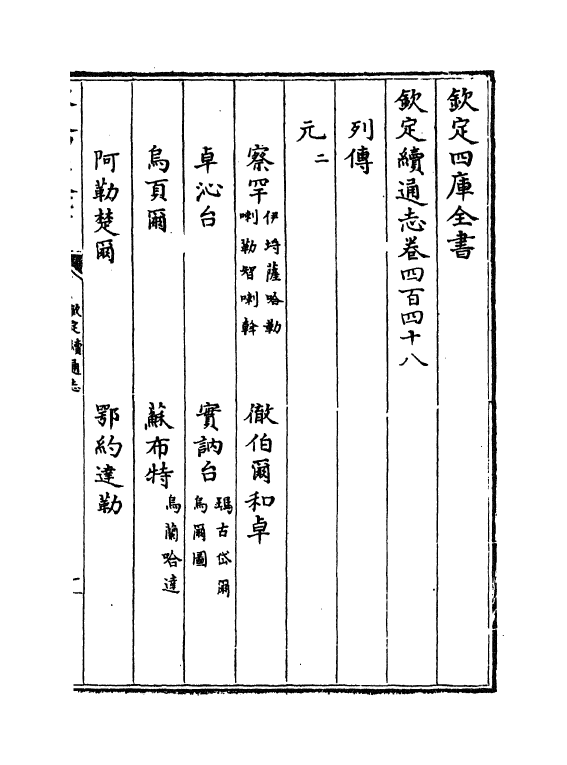 欽定四庫全書
欽定續通志卷四百四十八
列傳
元二
察罕 伊埒薩哈勒 喇勒智喇斡 徹伯爾和卓
卓沁台 實訥台 瑪古岱爾 烏爾圖
烏頁爾 蘇布特 烏蘭哈達
阿勒楚爾 鄂約達勒
欽定續通志